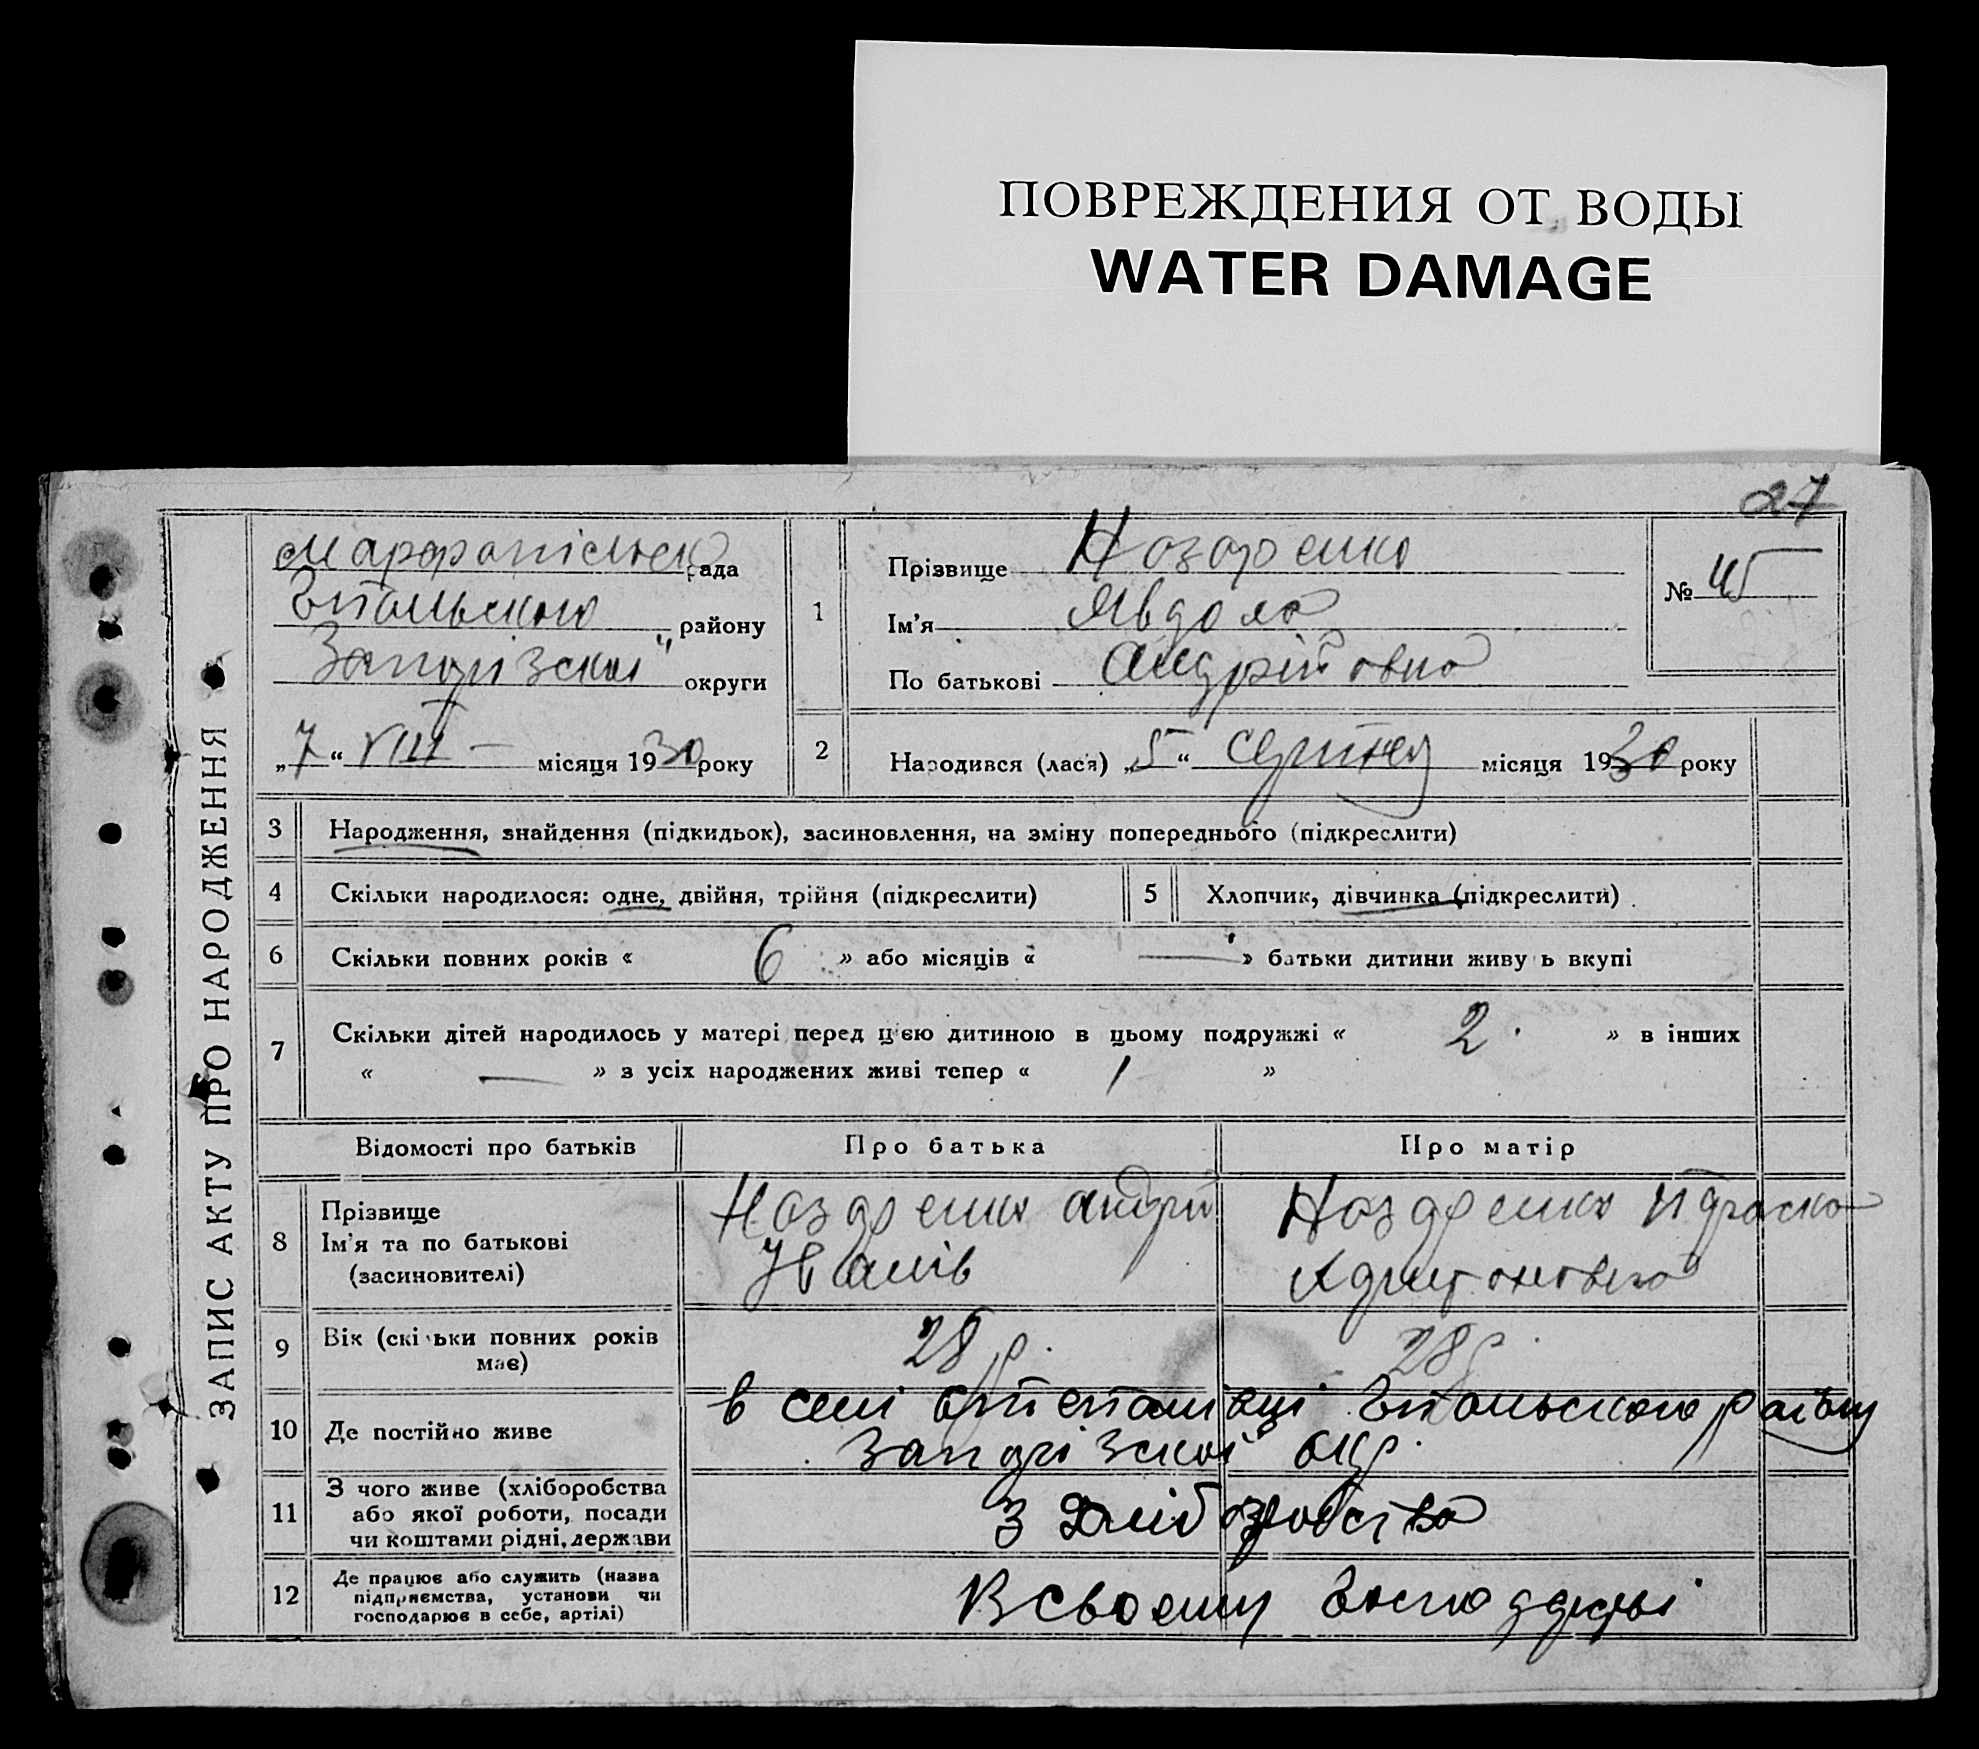 ПОВРЕЖДЕНИЯ ОТ ВОДЫ
WATER DAMAGE
27
ЗАПИС АКТУ ПРО НАРОДЖЕННЯ
рада
району
Запорізскої округи
„7“ VIII — місяця 1930 року
1
Прізвище
Ім'я Явдоха
По батькові Андрійовна
№ 45
2
Народився (лася) „5“ серпня місяця 1930 року
3 Народження, знайдення (підкидьок), засиновлення, на зміну попереднього (підкреслити)
4 Скільки народилося: одне, двійня, трійня (підкреслити)
5 Хлопчик, дівчинка (підкреслити)
6 Скільки повних років « 6 » або місяців « — » батьки дитини живуть вкупі
7 Скільки дітей народилось у матері перед цією дитиною в цьому подружжі « 2 » в інших
« — » з усіх народжених живі тепер « 1 »
Відомості про батьків
Про батька
Про матір
8
Прізвище
Ім'я та по батькові
(засиновителі)
Ноздренко Андрій
Ноздренко
9
Вік (скільки повних років
має)
28 р.
28 р.
10 Де постійно живе
в селі району
Запорізскої окр.
11
З чого живе (хліборобства
або якої роботи, посади
чи коштами рідні, держави
З хліборобства
12
Де працює або служить (назва
підприємства, установи чи
господарює в себе, артілі)
В своєму